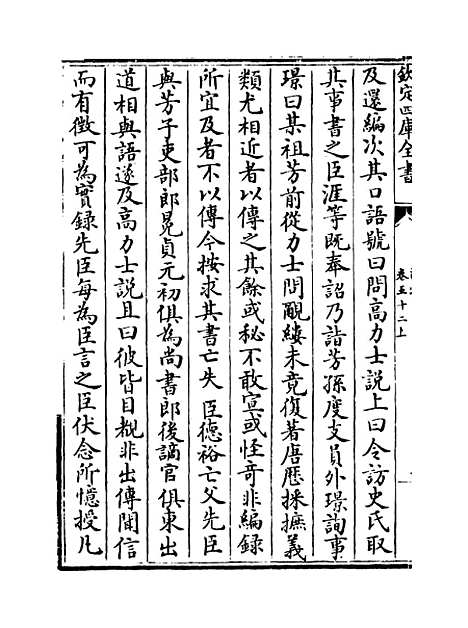 欽定四庫全書
卷五十二上
及還編次其口語號曰問高力士説上曰令訪史氏取
其事書之臣涯等既奉詔乃詣芳孫度支員外璟詢事
璟曰某祖芳前從力士問覼縷未竟復著唐歷採摭義
類尤相近者以傳之其餘或秘不敢宣或怪奇非編録
所宜及者不以傳今按求其書亡失臣德裕亡父先臣
與芳子吏部郎晃貞元初俱為尚書郎後謫官俱東出
道相與語遂及高力士説且曰彼皆目覩非出傳聞信
而有徴可為實録先臣每為臣言之臣伏念所憶授凡